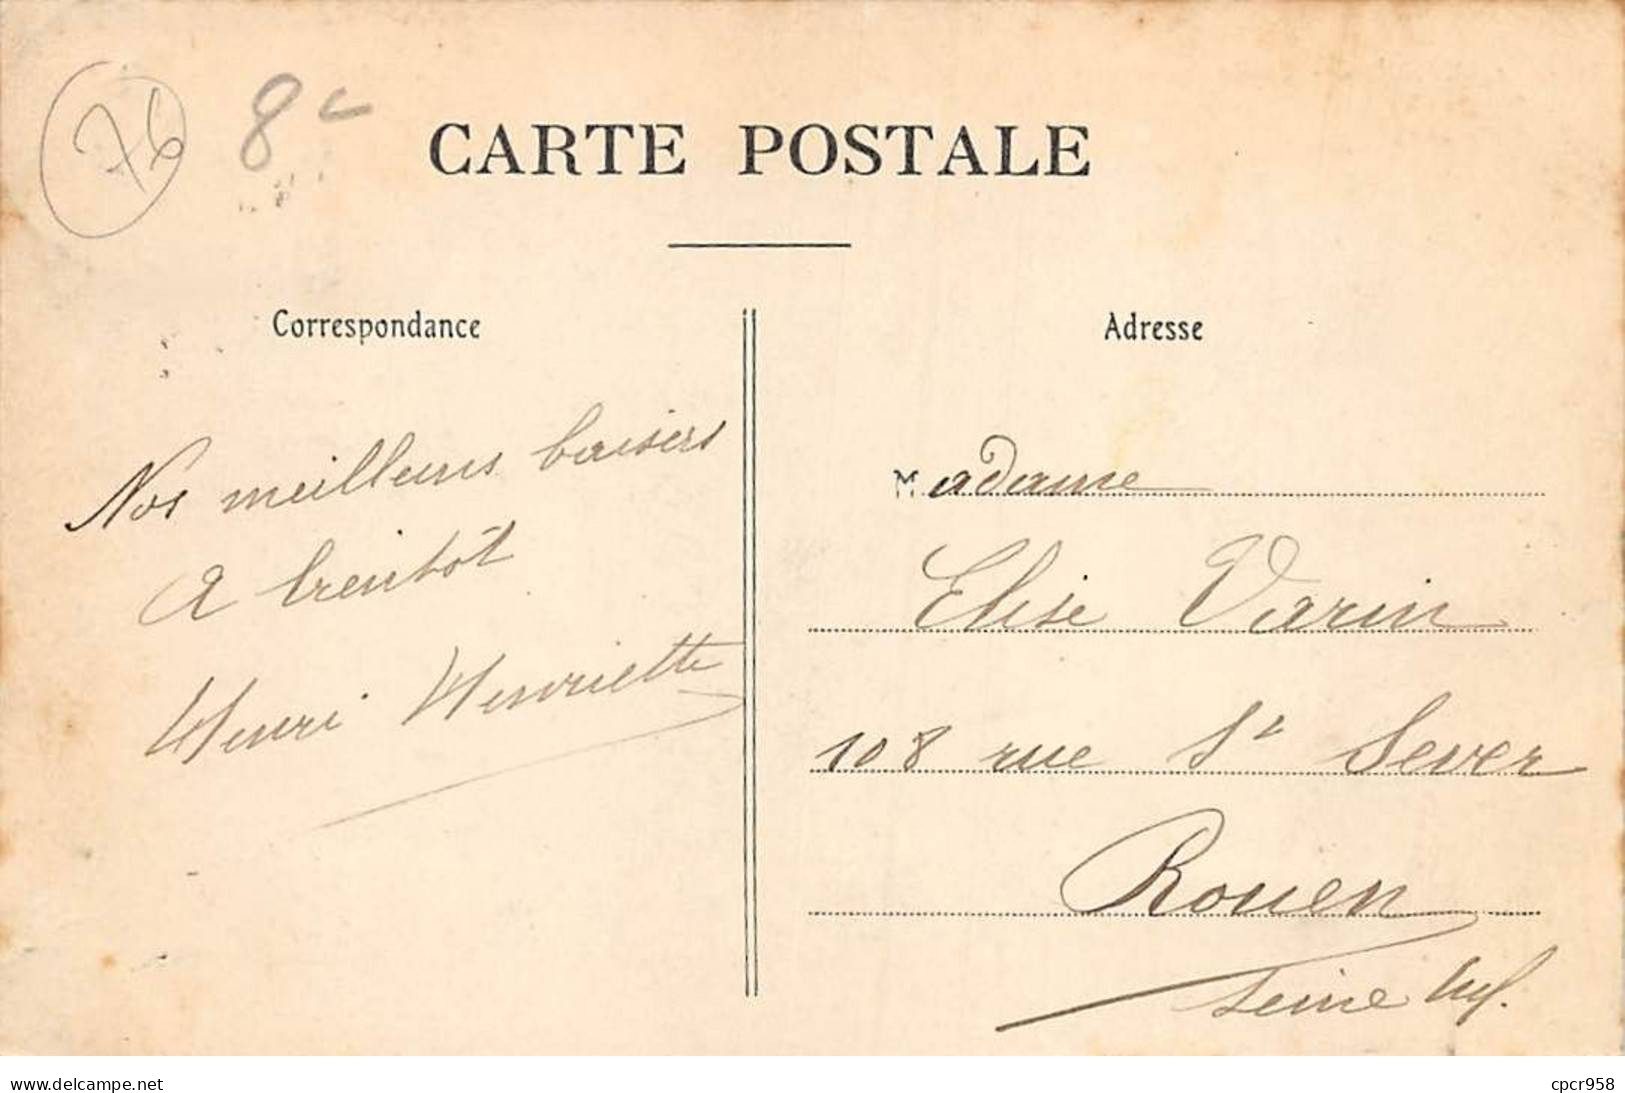 76 8c
CARTE POSTALE
Correspondance
Adresse
Nos meilleurs baisers
A bientôt
Henri Henriette
Madame
Elise Varin
108 rue St Sever
Rouen
Seine Inf.
www.delcampe.net
cpcr958